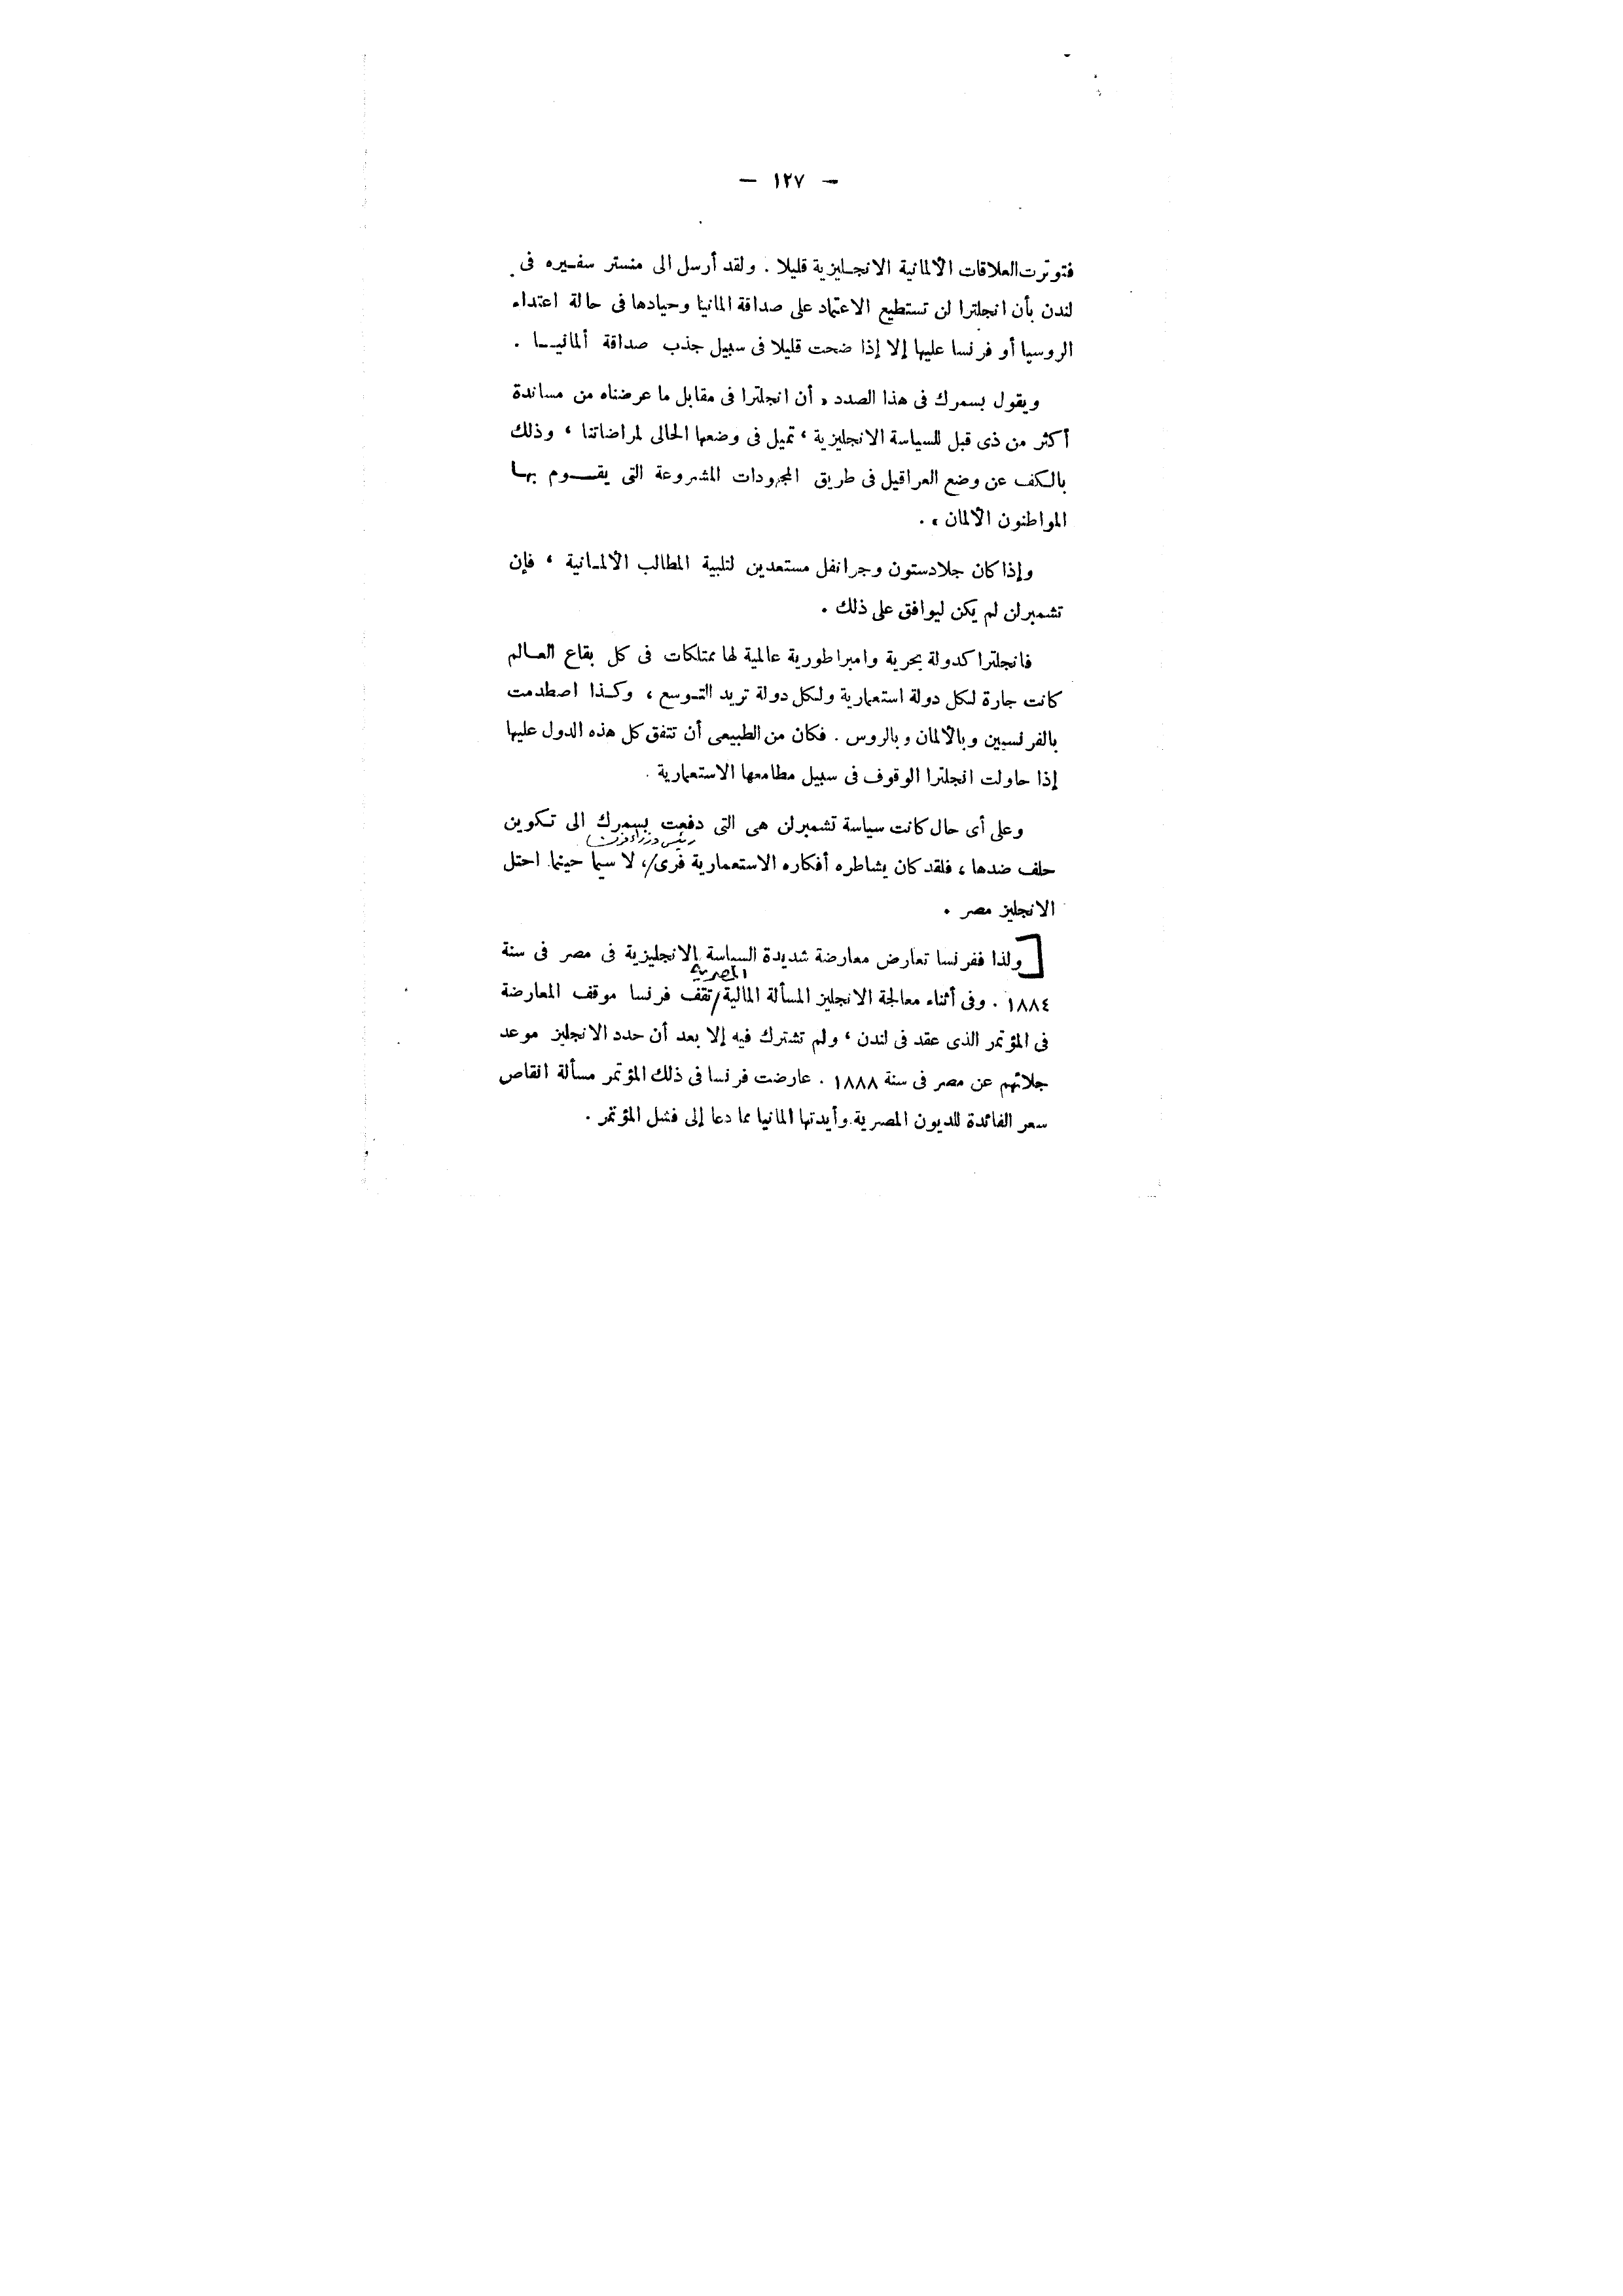 — ١٢٧ —
فتوترت العلاقات الألمانية الانجليزية قليلا . ولقد أرسل الى منستر سفيره فى
لندن بأن انجلترا لن تستطيع الاعتماد على صداقة المانيا وحيادها فى حالة اعتداء
الروسيا أو فرنسا عليها إلا إذا ضحت قليلا فى سبيل جذب صداقة ألمانيا .
ويقول بسمرك فى هذا الصدد « أن انجلترا فى مقابل ما عرضناه من مساندة
أكثر من ذى قبل للسياسة الانجليزية ، تميل فى وضعها الحالى لمراضاتنا ، وذلك
بالكف عن وضع العراقيل فى طريق المجهودات المشروعة التى يقوم بها
المواطنون الألمان » .
وإذا كان جلادستون وجرانفل مستعدين لتلبية المطالب الألمانية ، فإن
تشمبرلن لم يكن ليوافق على ذلك .
فانجلترا كدولة بحرية وامبراطورية عالمية لها ممتلكات فى كل بقاع العالم
كانت جارة لكل دولة استعمارية ولكل دولة تريد التوسع ، وكذا اصطدمت
بالفرنسيين وبالألمان وبالروس . فكان من الطبيعى أن تتفق كل هذه الدول عليها
إذا حاولت انجلترا الوقوف فى سبيل مطامعها الاستعمارية .
وعلى أى حال كانت سياسة تشمبرلن هى التى دفعت بسمرك الى تكوين
رئيس وزراء فرنسا
حلف ضدها ، فلقد كان يشاطره أفكاره الاستعمارية فرى/، لا سيما حينما احتل
الانجليز مصر .
[ولذا ففرنسا تعارض معارضة شديدة السياسة الانجليزية فى مصر فى سنة
المصرية
١٨٨٤ . وفى أثناء معالجة الانجليز المسألة المالية/تقف فرنسا موقف المعارضة
فى المؤتمر الذى عقد فى لندن ، ولم تشترك فيه إلا بعد أن حدد الانجليز موعد
جلائهم عن مصر فى سنة ١٨٨٨ . عارضت فرنسا فى ذلك المؤتمر مسألة انقاص
سعر الفائدة للديون المصرية وأيدتها المانيا مما دعا إلى فشل المؤتمر .